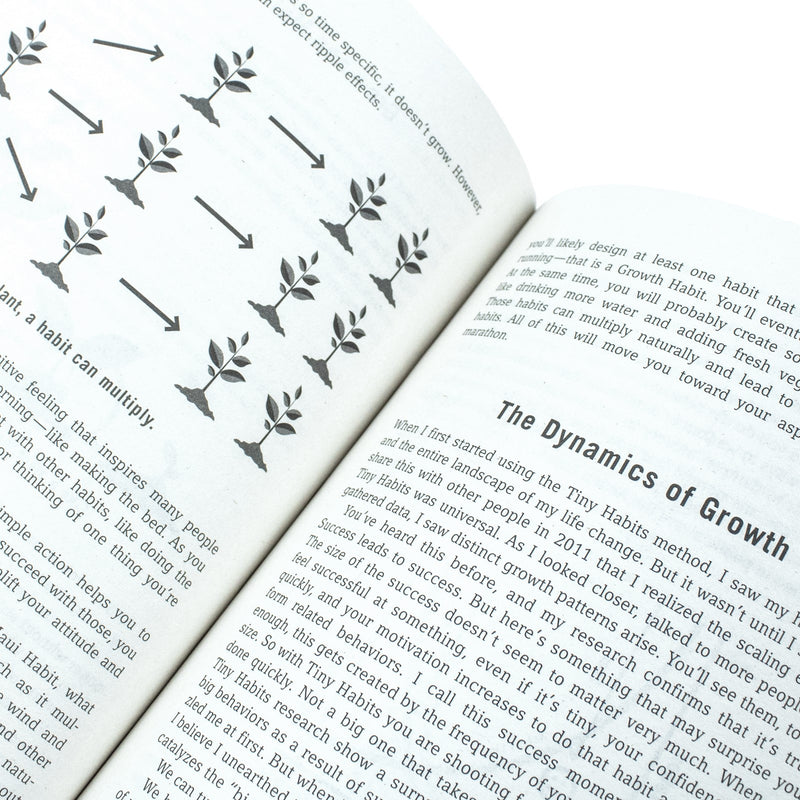 s so time specific, it doesn't grow. However,
n expect ripple effects.
lant, a habit can multiply.
itive feeling that inspires many people
orning—like making the bed. As you
t with other habits, like doing the
or thinking of one thing you're
imple action helps you to
succeed with those, you
plift your attitude and
Maui Habit, what
ch, as it mul-
e wind and
nd other
natu-
out
you'll likely design at least one habit that
running—that is a Growth Habit. You'll event
At the same time, you will probably create so
like drinking more water and adding fresh veg
Those habits can multiply naturally and lead to
habits. All of this will move you toward your asp
marathon.
The Dynamics of Growth
When I first started using the Tiny Habits method, I saw my h
and the entire landscape of my life change. But it wasn't until I
share this with other people in 2011 that I realized the scaling e
Tiny Habits was universal. As I looked closer, talked to more peopl
gathered data, I saw distinct growth patterns arise. You'll see them, to
You've heard this before, and my research confirms that it's tr
Success leads to success. But here's something that may surprise you
The size of the success doesn't seem to matter very much. When
feel successful at something, even if it's tiny, your confiden
quickly, and your motivation increases to do that habit
form related behaviors. I call this success momen
enough, this gets created by the frequency of yo
size. So with Tiny Habits you are shooting f
done quickly. Not a big one that takes
Tiny Habits research show a surp
big behaviors as a result of s
zled me at first. But when
I believe I unearthed
catalyzes the "bi
We can tu
We h
of y